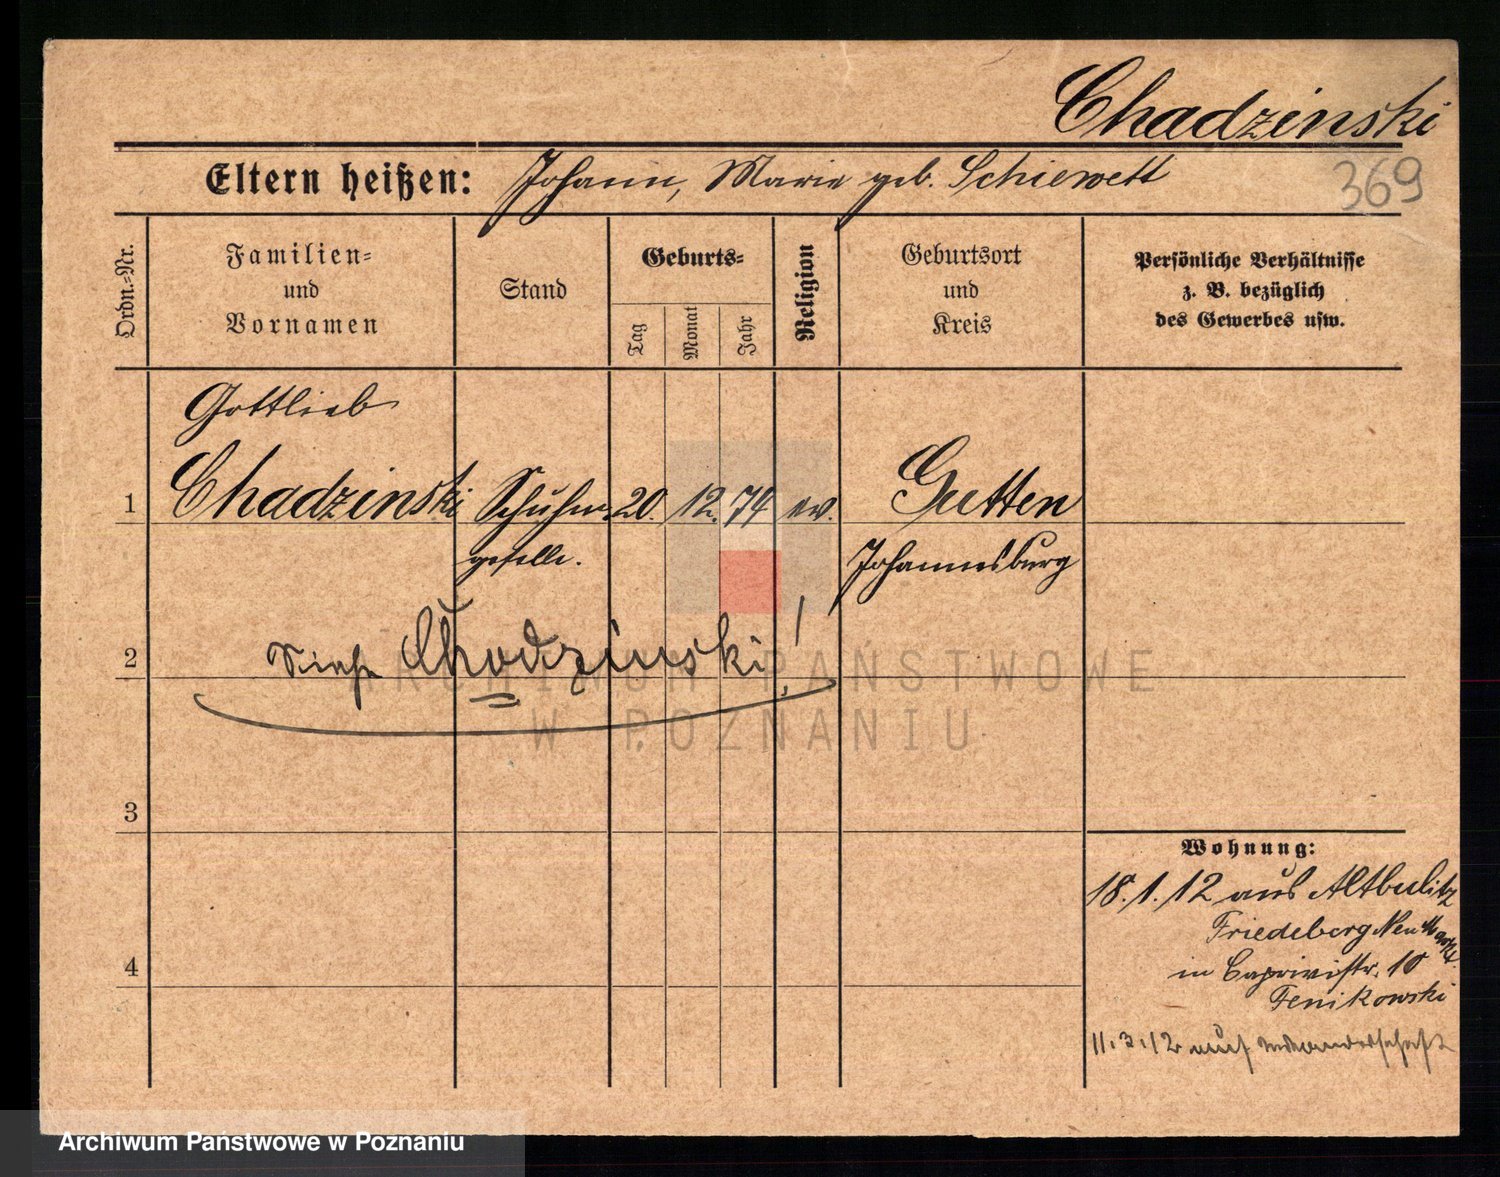 Chadzinski
Eltern heißen: Johann, Marie geb. Schiewett
369
Ordn.-Nr.
Familien-
und
Vornamen
Stand
Geburts-
Tag
Monat
Jahr
Religion
Geburtsort
und
Kreis
Persönliche Verhältnisse
z. B. bezüglich
des Gewerbes usw.
Gottlieb
1 Chadzinski Schuhm. 20. 12. 74 ev. Gutten
geselle. Johannesburg
2 Siehe Chodzinski!
3
4
ARCHIWUM PAŃSTWOWE
W POZNANIU
Wohnung:
18.1.12 aus Altbeelitz
Friedeberg Neumark
in Caprivistr. 10
Fenikowski
11.3.12 auf Wanderschaft
Archiwum Państwowe w Poznaniu